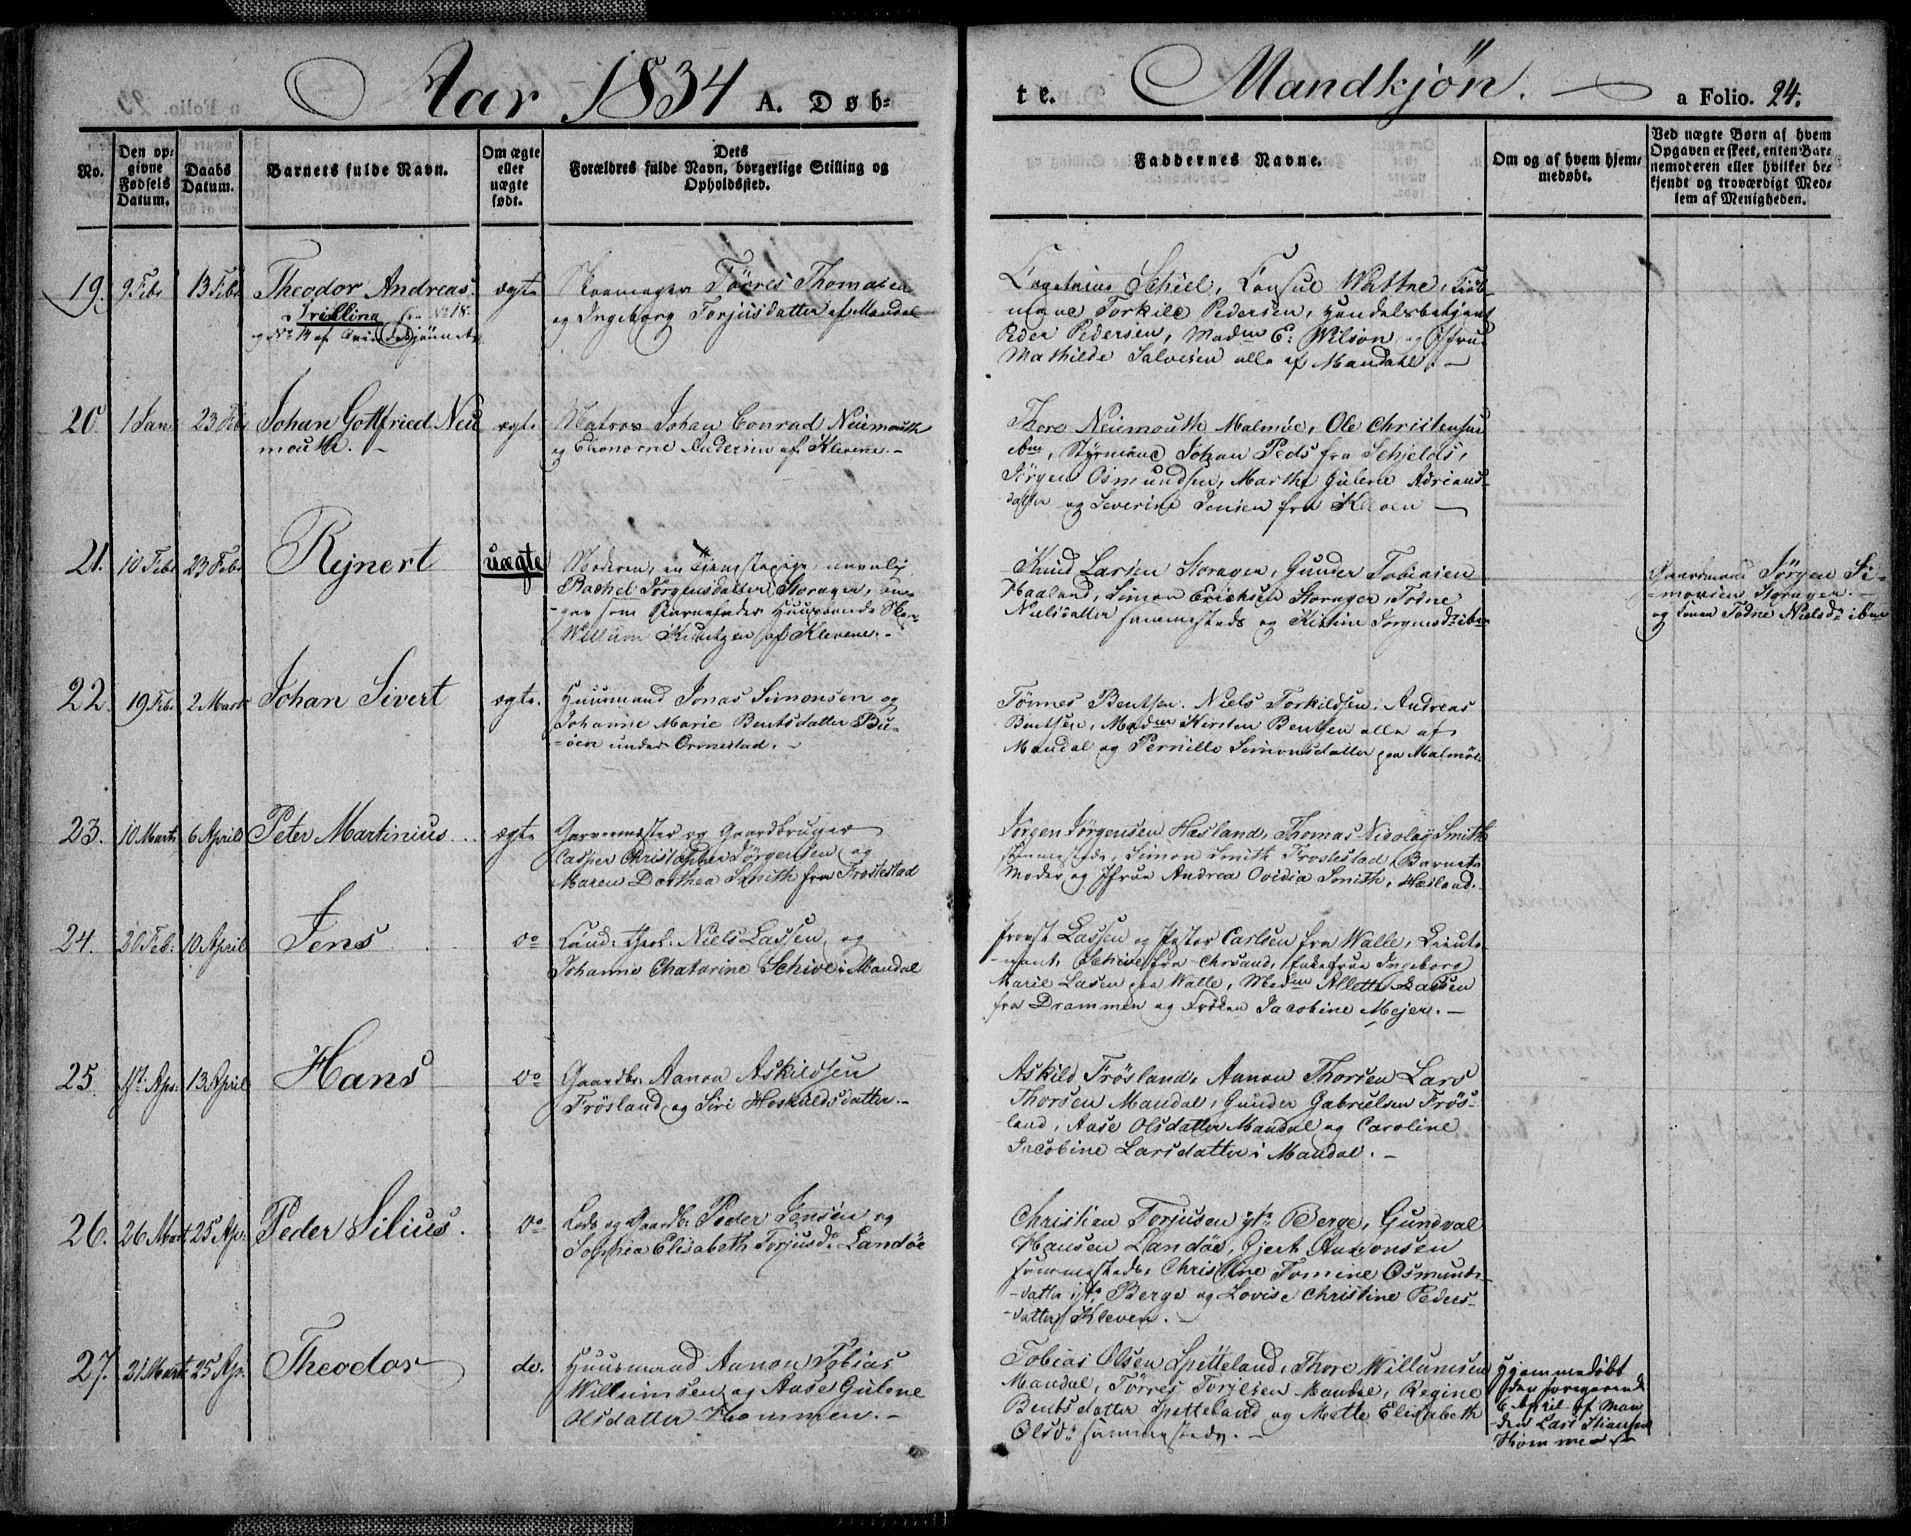 Aar 1834 A. Døb-
te. Mandkjøn. a Folio. 24.
No.
Den op-
givne
Fødsels
Datum.
Daabs
Datum.
Barnets fulde Navn.
Om ægte
eller
uægte
født.
Dets
Forældres fulde Navn, borgerlige Stilling og
Opholdssted.
Faddernes Navne.
Om og af hvem hjem-
medøbt.
Ved uægte Børn af hvem
Opgaven er skeet, enten Bar-
nemoderen eller hvilket be-
kjendt og troværdigt Med-
lem af Menigheden.
19. 9 Febr 13 Febr Theodor Andreas.
Trilling see No 18
og No 14 af
ægte
Skoemager Törres Thomasen
og Ingeborg Torjusdatter af Mandal
Schiel, Consul Wattne,
Torkild Pedersen, Handelsbetjent
Peder Pedersen, Madm E: Wilson og Jfrue
Mathilde Salvesen alle af Mandahl. -
20. 1 Jan 23 Feb Johan Gottfried Neu
mouth.
ægte
Matros Johan Conrad Neumouth
og Eleonorne Andersen af Klevene. -
Thore Neumouth Malmöe, Ole Christensen
ibm, Styrmand Johan Peds fra Schjelds,
Jörgen Osmundsen, Marthe Gulene Adrians-
datter og Severine Jensen fra Kleven -
21. 10 Febr 23 Febr Rejnert
uægte
Moderen, en Tjenestepige, navnlig
Rachel Jörgensdatter Storager, an-
gav som Barnefader Huusbonds
Willum Kientzen af Klevene. -
Knud Larsen Storager, Gunder Tobiasen
Haaland, Simon Erichsen Storager, Todne
Nielsdatter sammesteds og Kistine Jorgensdr ibm
Gaardmand Jörgen Si-
-monsen Storager. -
og Konen Todne Nielsdr ibm
22. 19 Feb. 2 Marts Johan Sivert
ægte.
Huusmand Jonas Simonsen og
Johanne Marie Bentsdatter Bu-
-öen under Ormestad. -
Tönnes Bentsen. Niels Torkildsen, Andreas
Bentsen, Madm Kirsten Bentsen alle af
Mandal og Pernille Simonsdatter paa Malmöe.
23. 10 Marts 6 April Peter Martinius
ægte
Garvermester og Gaardbruger
Casper Christopher Jörgensen og
Maren Dorthea Smith fra Frostestad
Jörgen Jörgensen Hæsland, Thomas Nicolay Smith
sammesteds, Simon Smith Frostestad, Barnets
Moder og Jfrue Andrea Ovidia Smith, Hæsland.
24. 20 Feb: 10 April Jens
do
Cand. theol. Niels Lassen og
Johanne Chatarine Schive i Mandal
Provst Lassen og Pastor Carlsen fra Walle, Lieute-
-nant Schive fra Chrsand, Enkefrue Ingeborg
Marie Lasen paa Walle, Madm Allette Lassen
fra Drammen og Fröken Jacobine Mejer. -
25. Apr. 13 April Hans
do
Gaardbr. Aanon Askildsen
Frösland og Siri Hoskuldsdatter. -
Askild Frösland, Aanon Thorsen Lars
Thorsen Mandal, Gunder Gabrielsen Frös-
land, Aase Olsdatter Mandal og Caroline
Jacobine Larsdatter i Mandal. -
26. 26 Mart 25 Apr. Peder Silius.
do
Lods og Gaardb. Peder Jensen og
Sophia Elisabeth Torjusdr Landöe
Christien Torjusen Berge, Gundval
Hansen Landöe, Gjert Aanonsen
sammesteds. Christine Tomine Osmunds-
-datter Berge og Lovise Christine Peders-
-datter Kleven. -
27. 31 Mart 25 Apr. Theodor
do.
Huusmand Aanon Tobias
Willumsen og Aase Gulene
Olsdatter Hommen. -
Tobias Olsen Spetteland, Thore Willumsen
Mandal, Törres Torjesen Mandal, Regine
Bentsdatter Spetteland og Mette Elisabeth
Olsdr sammesteds. -
Hjemmedöbt
den foregaaende
6 April af Man
-den Lars Stiansen
Homme